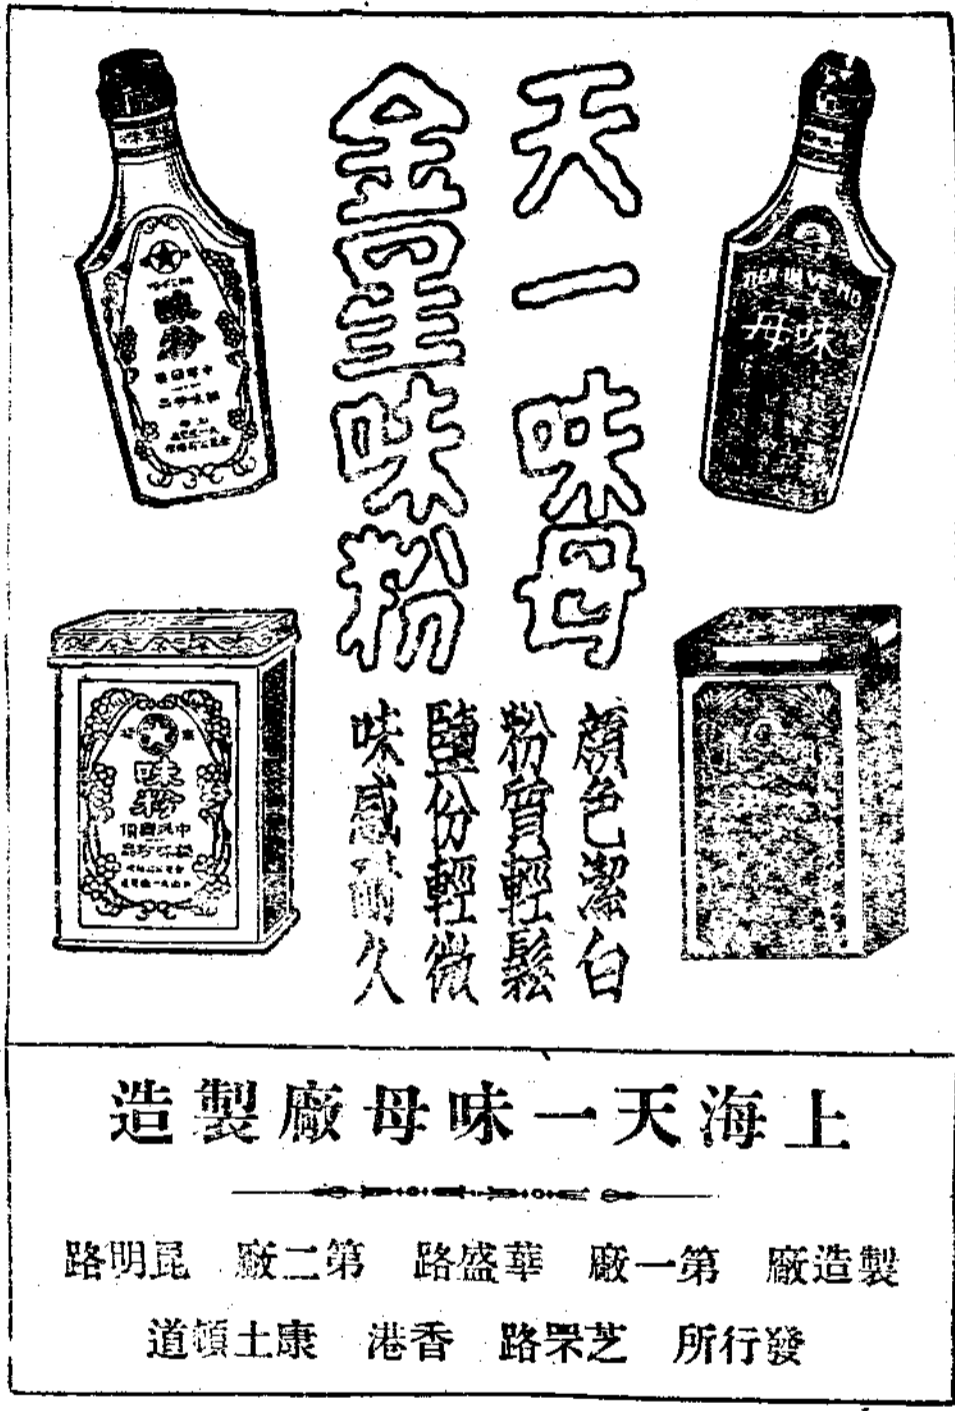 天一味母
金星味粉
顏色潔白
粉質輕鬆
鹽份輕微
味感耐久
TEEN IH VE MO
味母
味粉
味粉
上海天一味母廠製造
製造廠 第一廠 華盛路 第二廠 昆明路
發行所 芝罘路 香港 康土頓道